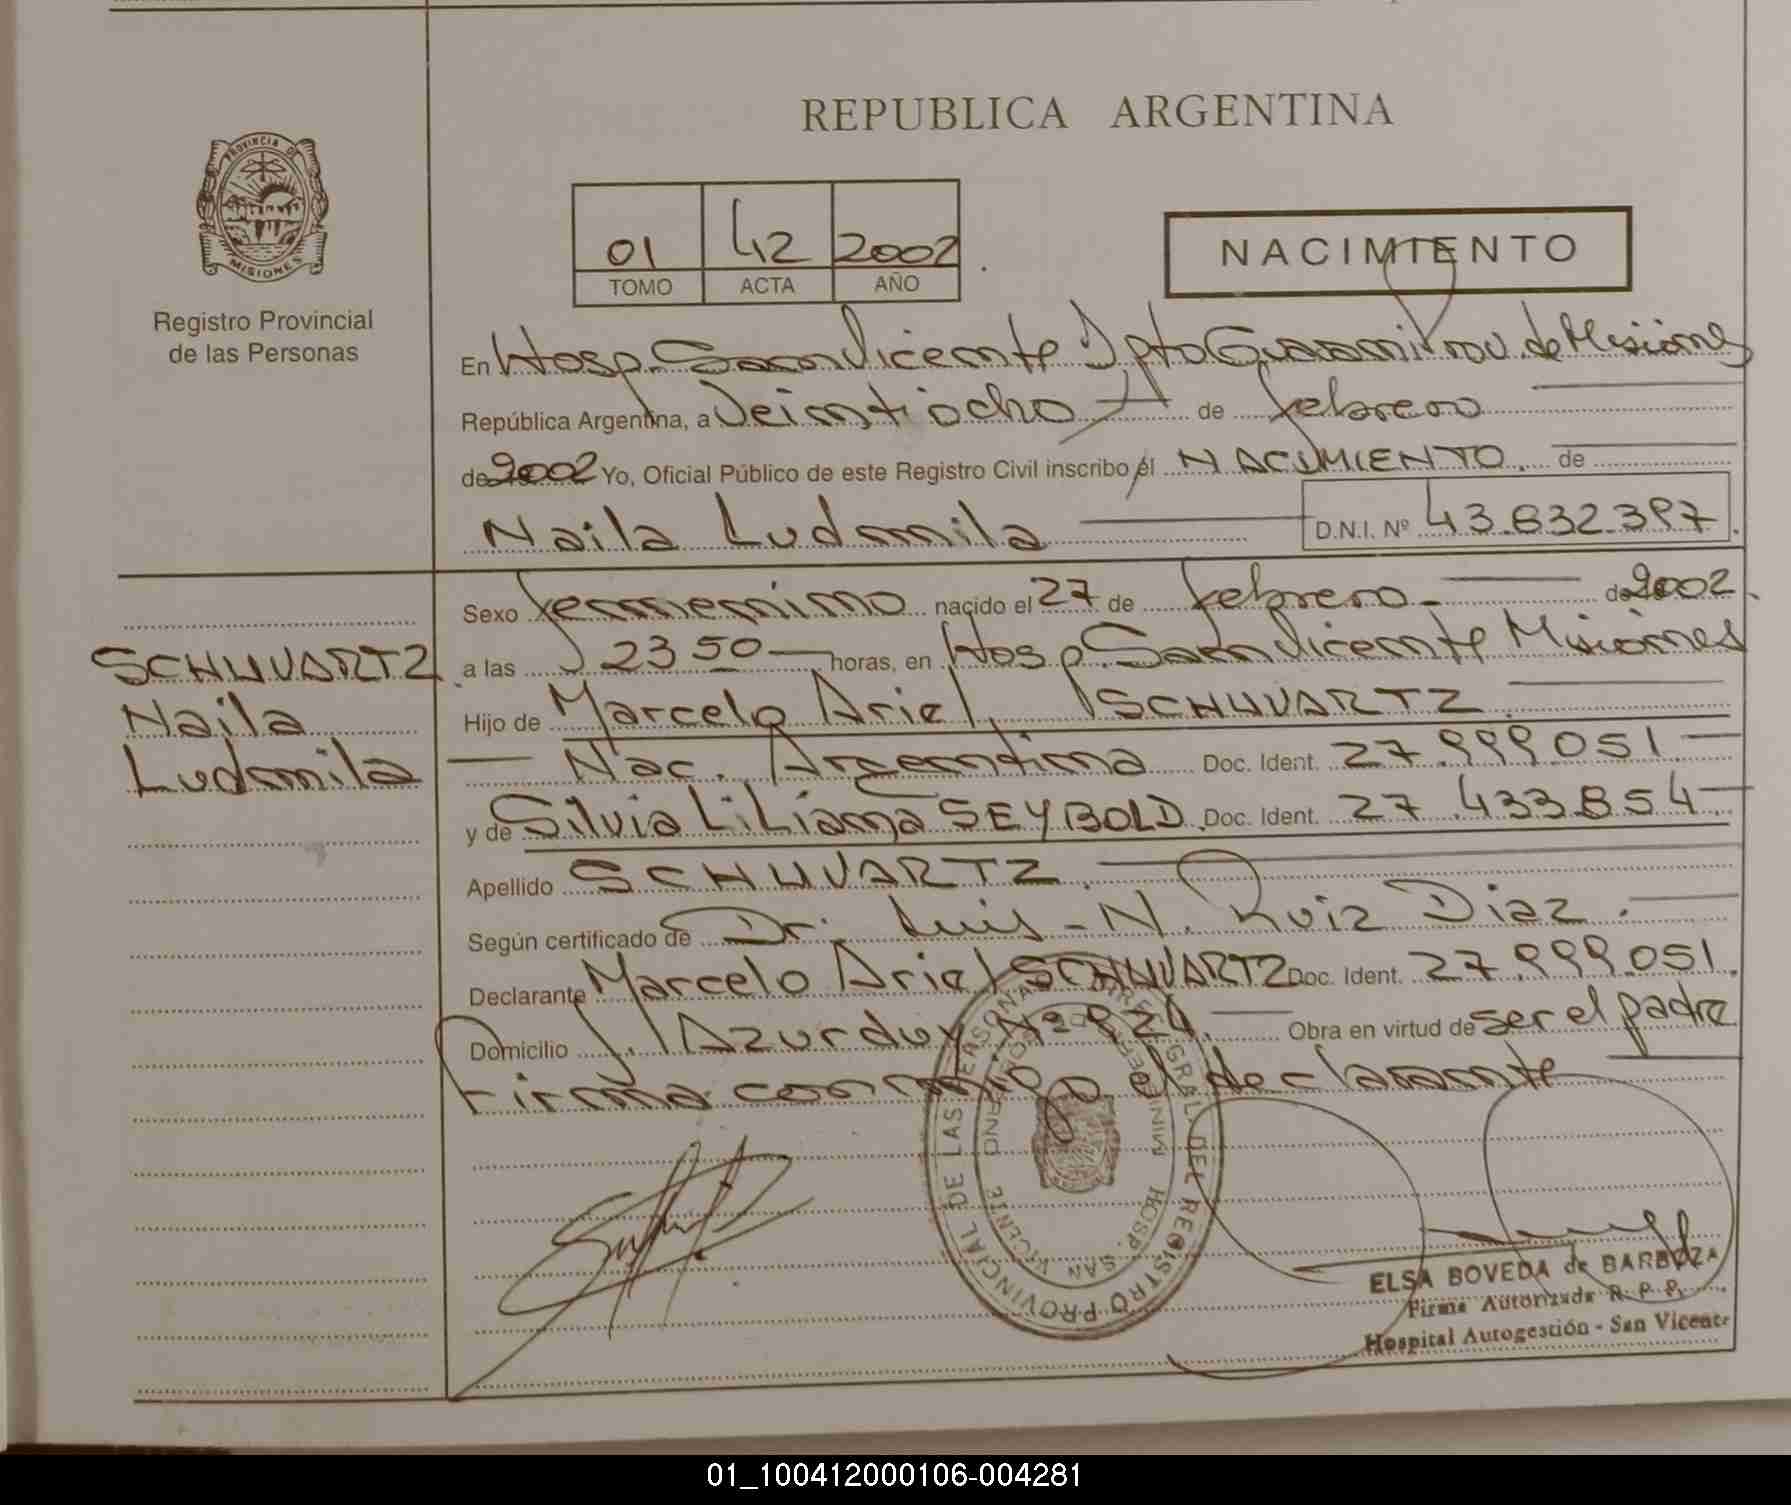 REPUBLICA ARGENTINA
PROVINCIA DE
MISIONES
Registro Provincial
de las Personas
01 42 2002
TOMO ACTA AÑO
NACIMIENTO
En Hosp. San Vicente Dpto Guarani Prov. de Misiones
República Argentina, a Veintiocho de febrero
de 2002 Yo, Oficial Público de este Registro Civil inscribo el NACIMIENTO. de
Naila Ludmila D.N.I. Nº 43.832.397.
Sexo femenino nacido el 27 de febrero de 2002.
a las 23 50 horas, en Hosp. San Vicente Misiones
Hijo de Marcelo Ariel SCHUVARTZ.
Nac. Argentina Doc. Ident. 27.999.051
y de Silvia Liliana SEYBOLD. Doc. Ident. 27.433.854
Apellido SCHUVARTZ.
Según certificado de Dr. Luis N. Ruiz Diaz.
Declarante Marcelo Ariel SCHUVARTZ Doc. Ident. 27.999.051.
Domicilio J. Azurduy Nº 824. Obra en virtud de ser el padre
Firma conmigo el declarante
SCHUVARTZ
Naila
Ludmila
DIREC. GRAL. DEL REGISTRO PROVINCIAL DE LAS PERSONAS
HOSP. SAN VICENTE
ELSA BOVEDA de BARBOZA
Firma Autorizada R. P. P.
Hospital Autogestión - San Vicente
01_100412000106-004281